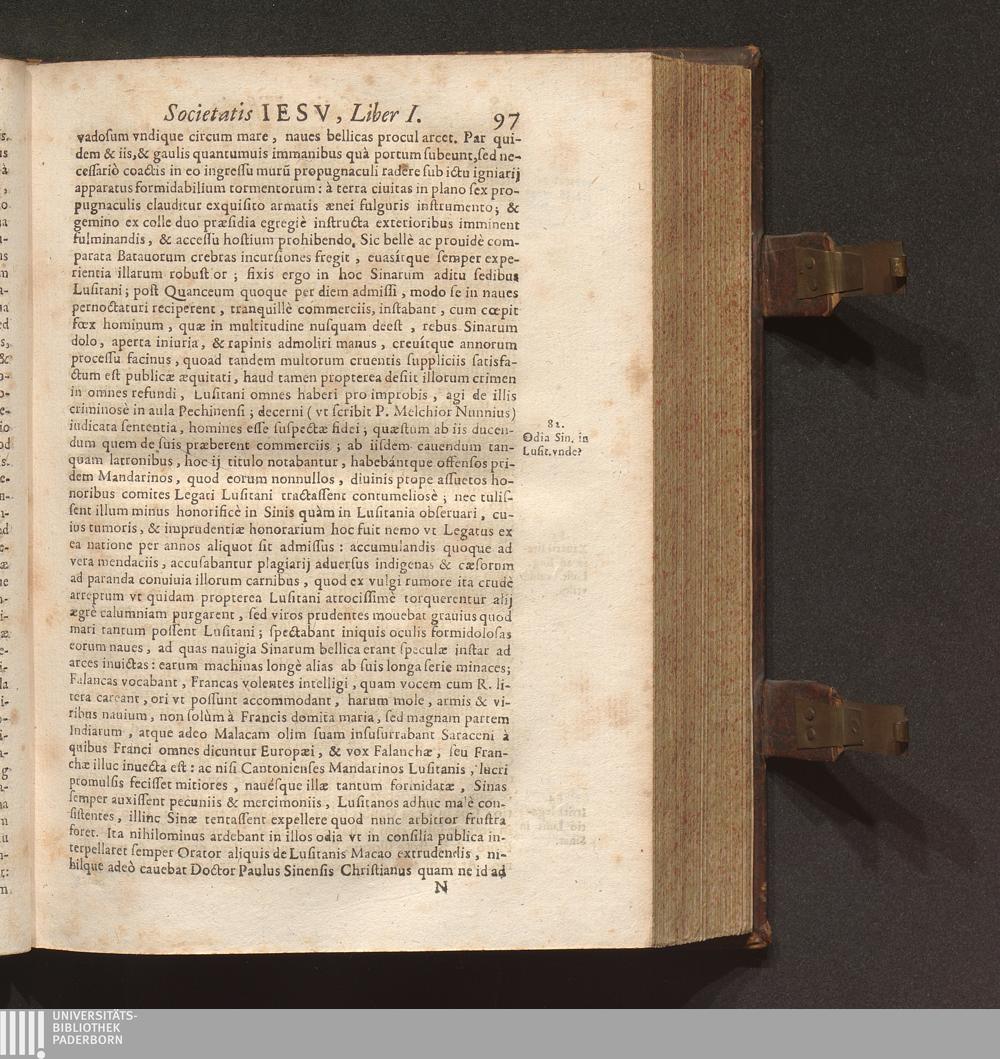 Societatis IESV, Liber I. 97
vadoſum vndique circum mare, naues bellicas procul arcet. Par qui-
dem & iis,& gaulis quantumuis immanibus quà portum ſubeunt,ſed ne-
ceſſariò coactis in eo ingreſſu murũ propugnaculi radere ſub ictu igniarij
apparatus formidabilium tormentorum : à terra ciuitas in plano ſex pro-
pugnaculis clauditur exquiſito armatis ænei fulguris inſtrumento; &
gemino ex colle duo præſidia egregiè inſtructa exterioribus imminent
fulminandis, & acceſſu hoſtium prohibendo. Sic bellè ac prouidè com-
parata Batauorum crebras incurſiones fregit, euaſitque ſemper expe-
rientia illarum robuſtior ; fixis ergo in hoc Sinarum aditu ſedibus
Luſitani ; poſt Quanceum quoque per diem admiſſi, modo ſe in naues
pernoctaturi reciperent, tranquillè commerciis, inſtabant, cum cœpit
fœx hominum, quæ in multitudine nuſquam deeſt, rebus Sinarum
dolo, aperta iniuria, & rapinis admoliri manus, creuitque annorum
proceſſu facinus, quoad tandem multorum cruentis ſuppliciis ſatisfa-
ctum eſt publicæ æquitati, haud tamen propterea deſiit illorum crimen
in omnes refundi, Luſitani omnes haberi pro improbis, agi de illis
criminosè in aula Pechinenſi ; decerni ( vt ſcribit P. Melchior Nunnius)
iudicata ſententia, homines eſſe ſuſpectæ fidei ; quæſtum ab iis ducen-
dum quem de ſuis præberent commerciis ; ab iiſdem cauendum tan-
quam latronibus, hoc ij titulo notabantur, habebántque offenſos pri-
dem Mandarinos, quod eorum nonnullos, diuinis prope aſſuetos ho-
noribus comites Legati Luſitani tractaſſent contumelioſè ; nec tuliſ-
ſent illum minus honorificè in Sinis quàm in Luſitania obſeruari, cu-
ius tumoris, & imprudentiæ honorarium hoc fuit nemo vt Legatus ex
ea natione per annos aliquot ſit admiſſus : accumulandis quoque ad
vera mendaciis, accuſabantur plagiarij aduerſus indigenas & cæſorum
ad paranda conuiuia illorum carnibus, quod ex vulgi rumore ita crudè
arreptum vt quidam propterea Luſitani atrociſſimè torquerentur alij
ægrè calumniam purgarent, ſed viros prudentes mouebat grauius quod
mari tantum poſſent Luſitani ; ſpectabant iniquis oculis formidoloſas
eorum naues, ad quas nauigia Sinarum bellica erant ſpeculæ inſtar ad
arces inuictas : earum machinas longè alias ab ſuis longa ſerie minaces;
Falancas vocabant, Francas volentes intelligi, quam vocem cum R. li-
tera careant, ori vt poſſunt accommodant, harum mole, armis & vi-
ribus nauium, non ſolùm à Francis domita maria, ſed magnam partem
Indiarum, atque adeo Malacam olim ſuam inſuſurrabant Saraceni à
quibus Franci omnes dicuntur Europæi, & vox Falanchæ, ſeu Fran-
chæ illuc inuecta eſt : ac niſi Cantonienſes Mandarinos Luſitanis, lucri
promulſis feciſſet mitiores, nauéſque illæ tantum formidatæ, Sinas
ſemper auxiſſent pecuniis & mercimoniis, Luſitanos adhuc malè con-
ſiſtentes, illinc Sinæ tentaſſent expellere quod nunc arbitror fruſtra
foret. Ita nihilominus ardebant in illos odia vt in conſilia publica in-
terpellaret ſemper Orator aliquis de Luſitanis Macao extrudendis, ni-
hilque adeò cauebat Doctor Paulus Sinenſis Chriſtianus quam ne id ad
N
82.
Odia Sin. in
Luſit.vnde?
UNIVERSITÄTS-
BIBLIOTHEK
PADERBORN